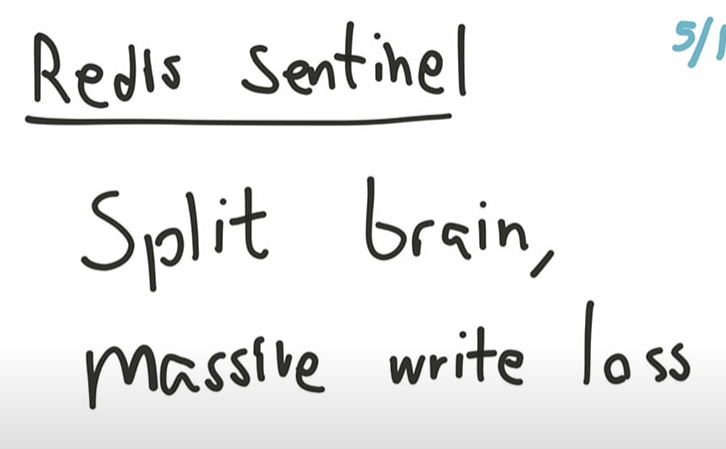 Redis Sentinel
5/1
Split brain,
massive write loss